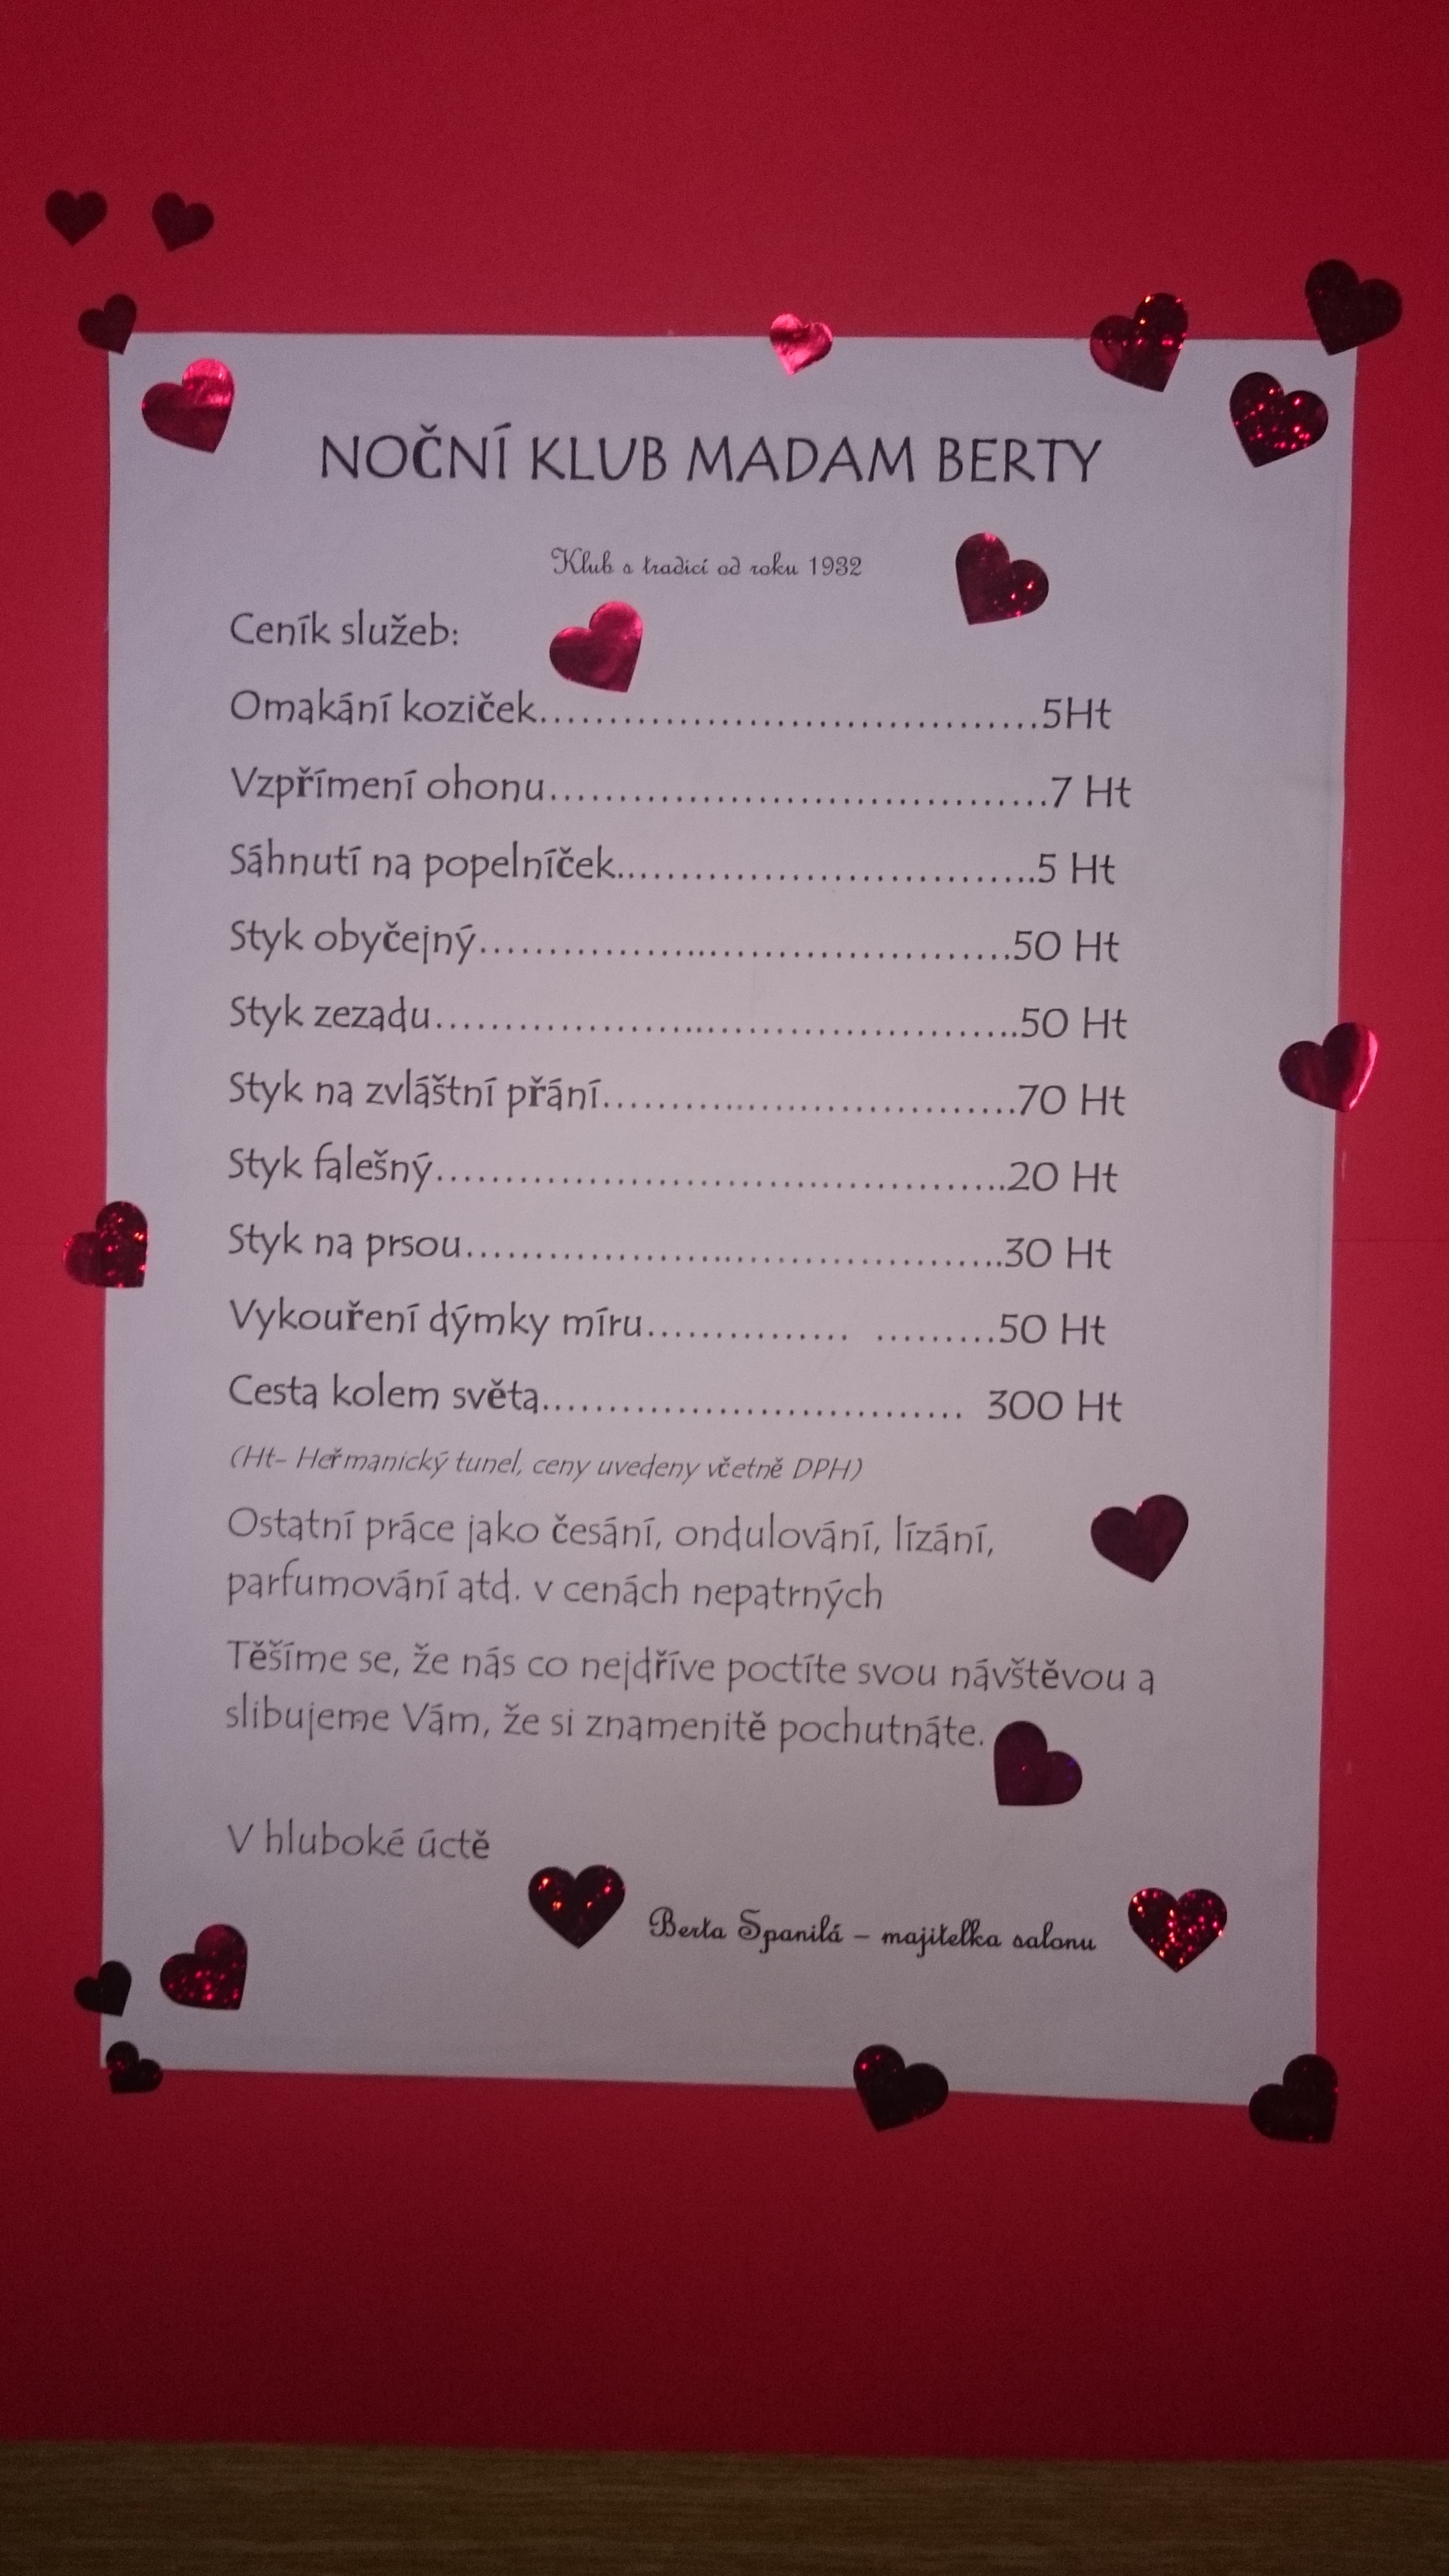 NOČNÍ KLUB MADAM BERTY
Klub s tradicí od roku 1932
Ceník služeb:
Omakání koziček.......................................5Ht
Vzpřímení ohonu.......................................7 Ht
Sáhnutí na popelníček.................................5 Ht
Styk obyčejný.........................................50 Ht
Styk zezadu...........................................50 Ht
Styk na zvláštní přání................................70 Ht
Styk falešný..........................................20 Ht
Styk na prsou.........................................30 Ht
Vykouření dýmky míru............... .........50 Ht
Cesta kolem světa................................ 300 Ht
(Ht- Heřmanický tunel, ceny uvedeny včetně DPH)
Ostatní práce jako česání, ondulování, lízání,
parfumování atd. v cenách nepatrných
Těšíme se, že nás co nejdříve poctíte svou návštěvou a
slibujeme Vám, že si znamenitě pochutnáte.
V hluboké úctě
Berta Spanilá – majitelka salonu